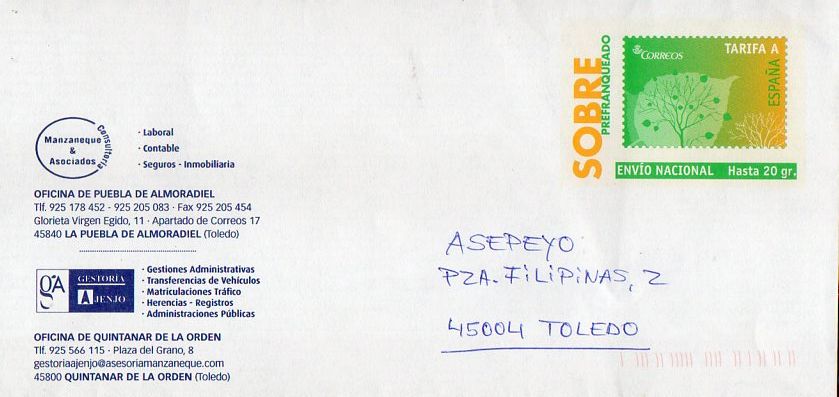 SOBRE
PREFRANQUEADO
CORREOS
TARIFA A
ESPAÑA
ENVÍO NACIONAL Hasta 20 gr.
Manzaneque
&
Asociados
Consultoria
· Laboral
· Contable
· Seguros - Inmobiliaria
OFICINA DE PUEBLA DE ALMORADIEL
Tlf. 925 178 452 - 925 205 083 · Fax 925 205 454
Glorieta Virgen Egido, 11 · Apartado de Correos 17
45840 LA PUEBLA DE ALMORADIEL (Toledo)
gA
GESTORÍA
AJENJO
· Gestiones Administrativas
· Transferencias de Vehículos
· Matriculaciones Tráfico
· Herencias - Registros
· Administraciones Públicas
OFICINA DE QUINTANAR DE LA ORDEN
Tlf. 925 566 115 · Plaza del Grano, 8
gestoriaajenjo@asesoriamanzaneque.com
45800 QUINTANAR DE LA ORDEN (Toledo)
ASEPEYO
PZA. FILIPINAS, 2
45004 TOLEDO